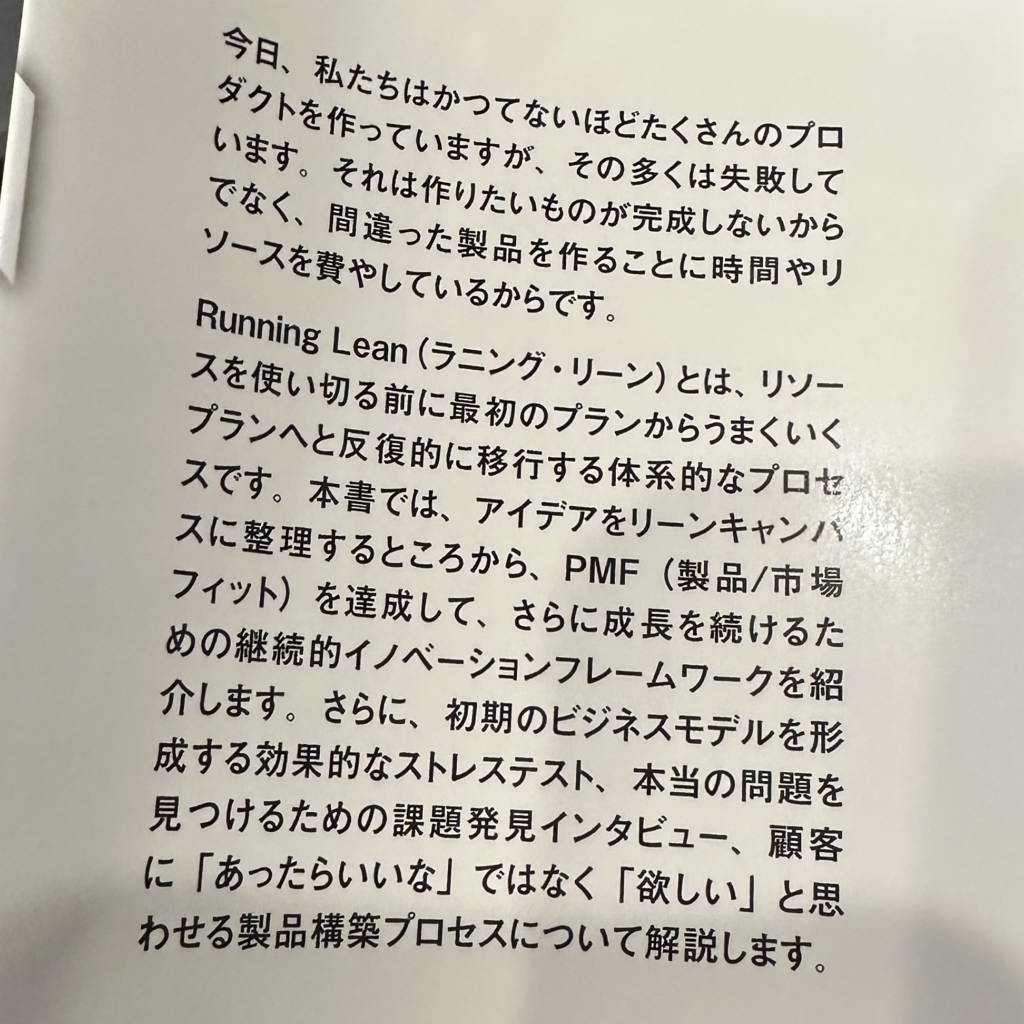 今日、私たちはかつてないほどたくさんのプロ
ダクトを作っていますが、その多くは失敗して
います。それは作りたいものが完成しないから
でなく、間違った製品を作ることに時間やリ
ソースを費やしているからです。
Running Lean（ラニング・リーン）とは、リソー
スを使い切る前に最初のプランからうまくいく
プランへと反復的に移行する体系的なプロセ
スです。本書では、アイデアをリーンキャンバ
スに整理するところから、PMF（製品/市場
フィット）を達成して、さらに成長を続けるた
めの継続的イノベーションフレームワークを紹
介します。さらに、初期のビジネスモデルを形
成する効果的なストレステスト、本当の問題を
見つけるための課題発見インタビュー、顧客
に「あったらいいな」ではなく「欲しい」と思
わせる製品構築プロセスについて解説します。